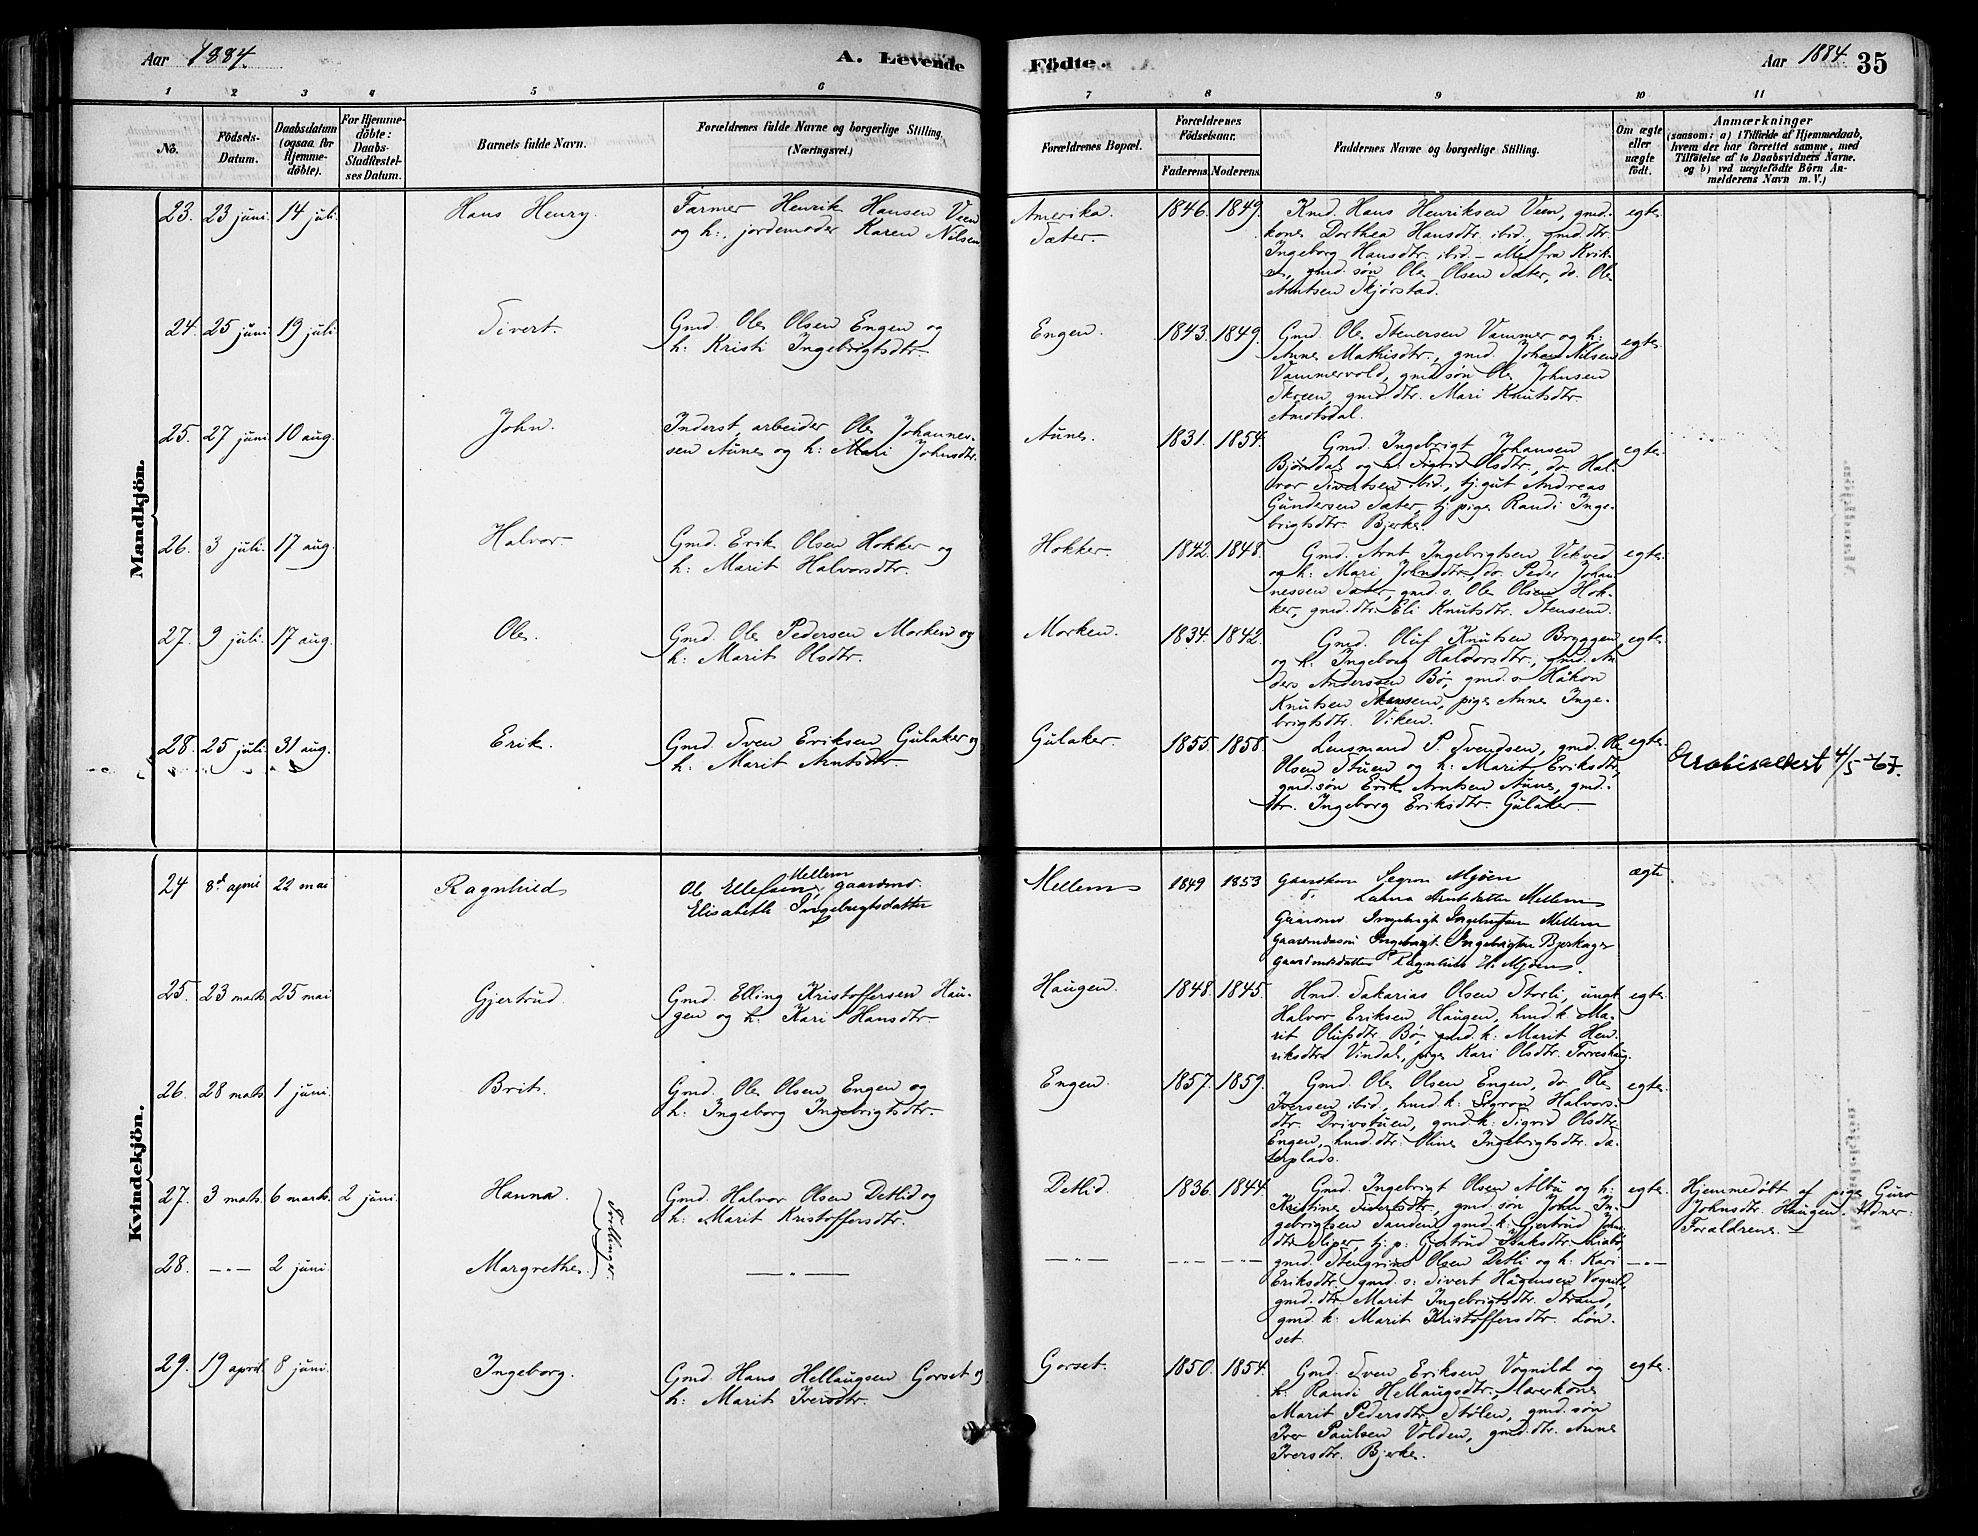 Aar 1884. A. Levende Födte. Aar 1884. 35
1 2 3 4 5 6 7 8 9 10 11
No.
Födsels-Datum.
Daabsdatum (ogsaa for Hjemme-döbte).
For Hjemme-döbte: Daabs-Stadfæstel-ses Datum.
Barnets fulde Navn.
Forældrenes fulde Navne og borgerlige Stilling. (Næringsvei.)
Forældrenes Bopæl.
Forældrenes Födselsaar. Faderens. Moderens.
Faddernes Navne og borgerlige Stilling.
Om ægte eller uægte født.
Anmærkninger
(saasom: a) i Tilfælde af Hjemmedaab,
hvem der har forrettet samme, med
Tilføielse af to Daabsvidners Navne.
og b) ved uægtefödte Börn An-
melderens Navn m. V.)
Mandkjön.
23. 23 juni. 14 juli. Hans Henry. Farmer Henrik Hansen Veen
og h:, jordemoder Karen Nilsen
Amerika.
Sæter.
1846. 1849.
Kmd. Hans Henriksen Veen, gmd.
kone Dorthea Hansdtr. ibid, gmd.dtr.
Ingeborg Hansdtr. ibid. – alle fra Kvik-
ne, gmd. søn Ole Olsen Sæter, do. Ole
Arntsen Skjørstad.
egte.
24. 25 juni. 19 juli. Sivert. Gmd. Ole Olsen Engen og
h: Kristi Ingebrigtsdtr.
Engen. 1843. 1849.
Gmd. Ole Stenersen Vammer og h:
Anne Mathisdtr., gmd. Johan Nilsen
Vammervold, gmd søn Ole Johnsen
Skreen, gmd.dtr. Mari Knutsdtr.
Amotsdal.
egte.
25. 27 juni. 10 aug. John. Inderst, arbeider Ole Johannes-
sen Aune og h: Mari Johnsdtr.
Aune. 1831. 1854.
Gmd. Ingebrigt Johansen
Bjørndal og h. Sigrid Olsdtr., do Hal-
vor Sivertsen ibid, tj. gut Andreas
Gundersen Sæter, tj. pige Randi Inge-
brigtsdtr. Bjerke.
egte.
26. 3 juli. 17 aug. Halvor. Gmd. Erik Olsen Hokker og
h: Marit Halvorsdtr.
Hokker. 1842. 1848.
Gmd. Arnt Ingebrigtsen Vekved
og h: Mari Johnsdtr, do. Peder Johan-
nessen Sæter, gmd. s. Ole Olsen Hok-
ker, gmd. dtr. Eli Knutsdtr. Stensem.
egte.
27. 9 juli. 17 aug. Ole. Gmd. Ole Pedersen Morken og
h: Marit Olsdtr.
Morken. 1834. 1842.
Gmd. Oluf Knutsen Bryggen
og h. Ingeborg Halvorsdtr., gmd. An-
ders Anderssen Bø, gmd. s Håkon
Knutsen Stensem, pige Anne Inge-
brigtsdtr. Viken.
egte.
28. 25 juli. 31 aug. Erik. Gmd. Sven Eriksen Gulaker og
h: Marit Arntsdtr
Gulaker. 1855. 1858.
Lensmand P. Svendsen, gmd. Ole
Olsen Stuen og h: Marit Eriksdtr,
gmd. søn Erik Arntsen Aune, gmd.-
dtr. Ingeborg Eriksdtr. Gulaker.
egte.
4/5
Kvindekjön.
24 8d april 22 mai Ragnhild Ole Ellefsen Mellem gaardmd.
Elisabeth Ingebrigtsdatter
Mellem 1849 1853
Gaardkone Segron Mjøen
Gaardmd Ingebrigt Ingebrigtsen Mellem
Gaardmdssøn Ingebrigt Ingebrigtsen Bjerkager
Gaardmdsdatter Ragnhild H. Mjøen.
ægte
25. 23 marts 25 mai Gjertrud. Gmd. Elling Kristoffersen Hau-
gen og h: Kari Hansdtr.
Haugen. 1848. 1845.
Hmd. Sakarias Olsen Storli, ungk.
Halvor Eriksen Haugen, hmd. k. Ma-
rit Olufsdtr Bø, gmd. k: Marit Hen-
riksdtr Vindal, pige Kari Olsdtr. Torreshaug.
egte.
26. 28 marts 1 juni. Brit. Gmd. Ole Olsen Engen og
h: Ingeborg Ingebrigtsdtr.
Engen. 1857. 1859.
Gmd. Ole Olsen Engen, do. Ole
Iversen ibid., hmd. k: Segron Halvors-
dtr. Drivstuen, gmd. k: Sigrid Olsdtr
Engen, hmd. dtr: Oline Ingebrigtsdtr. Sæ-
terplads.
egte.
27. 3 marts 6 marts. 2 juni. Hanna. Gmd. Halvor Olsen Detlid og
h: Marit Kristoffersdtr.
Tvillinger.
Detlid. 1836. 1844.
Gmd. Ingebrigt Olsen Ålbu og h:
Kristine Sivertsdtr, gmd. søn John In-
gebrigtsen Sanden, gmd. k: Gjertrud Johns-
dtr Sliper, tj. p: Gjertrud Isaksdtr.
egte.
Hjemmedøbt af pige Guro
Johnsdtr. Haugen. Vidner:
Forældrene. –
28. –"– 2 juni. Margrethe. –"–
–"– –"– –"–
gmd. Stengrim Olsen Detli og h: Kari
Eriksdtr. gmd. s: Sivert Hågensen Vognild,
gmd. dtr Marit Ingebrigtsdtr. Strand,
gmd. k: Marit Kristoffersdtr. Løn-
set.
–"–
29. 19 april. 8 juni. Ingeborg. Gmd. Hans Hellaugsen Gorset og
h: Marit Iversdtr.
Gorset. 1850. 1854.
Gmd. Sven Eriksen Vognild og
h: Randi Hellaugsdtr, lærerkone
Marit Pedersdtr. Stølen, gmd. søn
Iver Paulsen Volden, gmd. dtr. Anne
Iversdtr. Bjerke.
egte.